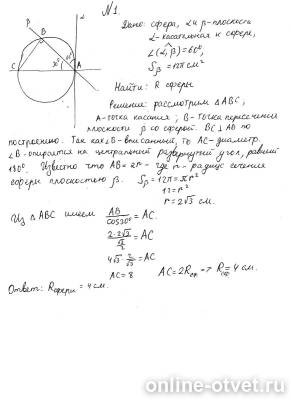 N1
Дано: сфера, α и β-плоскости
α-касательная к сфере,
∠(α;^β)=60°,
Sβ=12π см²
Найти: R сферы
Решение: рассмотрим △ABC,
A-точка касания; B-точка пересечения
плоскости β со сферой. BC⊥AB по
построению. Так как ∠B-вписанный, то AC-диаметр.
∠B-опирается на центральный развернутый угол, равный
180°. Известно что AB=2r- где r- радиус сечения
сферы плоскостью β. Sβ=12π=πr²
12=r²
r=2√3 см.
Из △ABC имеем AB/cos30°=AC.
2·2√3/(√3/2)=AC
4√3·2/√3=AC
AC=8 AC=2Rсф => Rсф=4 см.
Ответ: Rсферы=4см.
β
α
B
C
30°
60°
A
online-otvet.ru